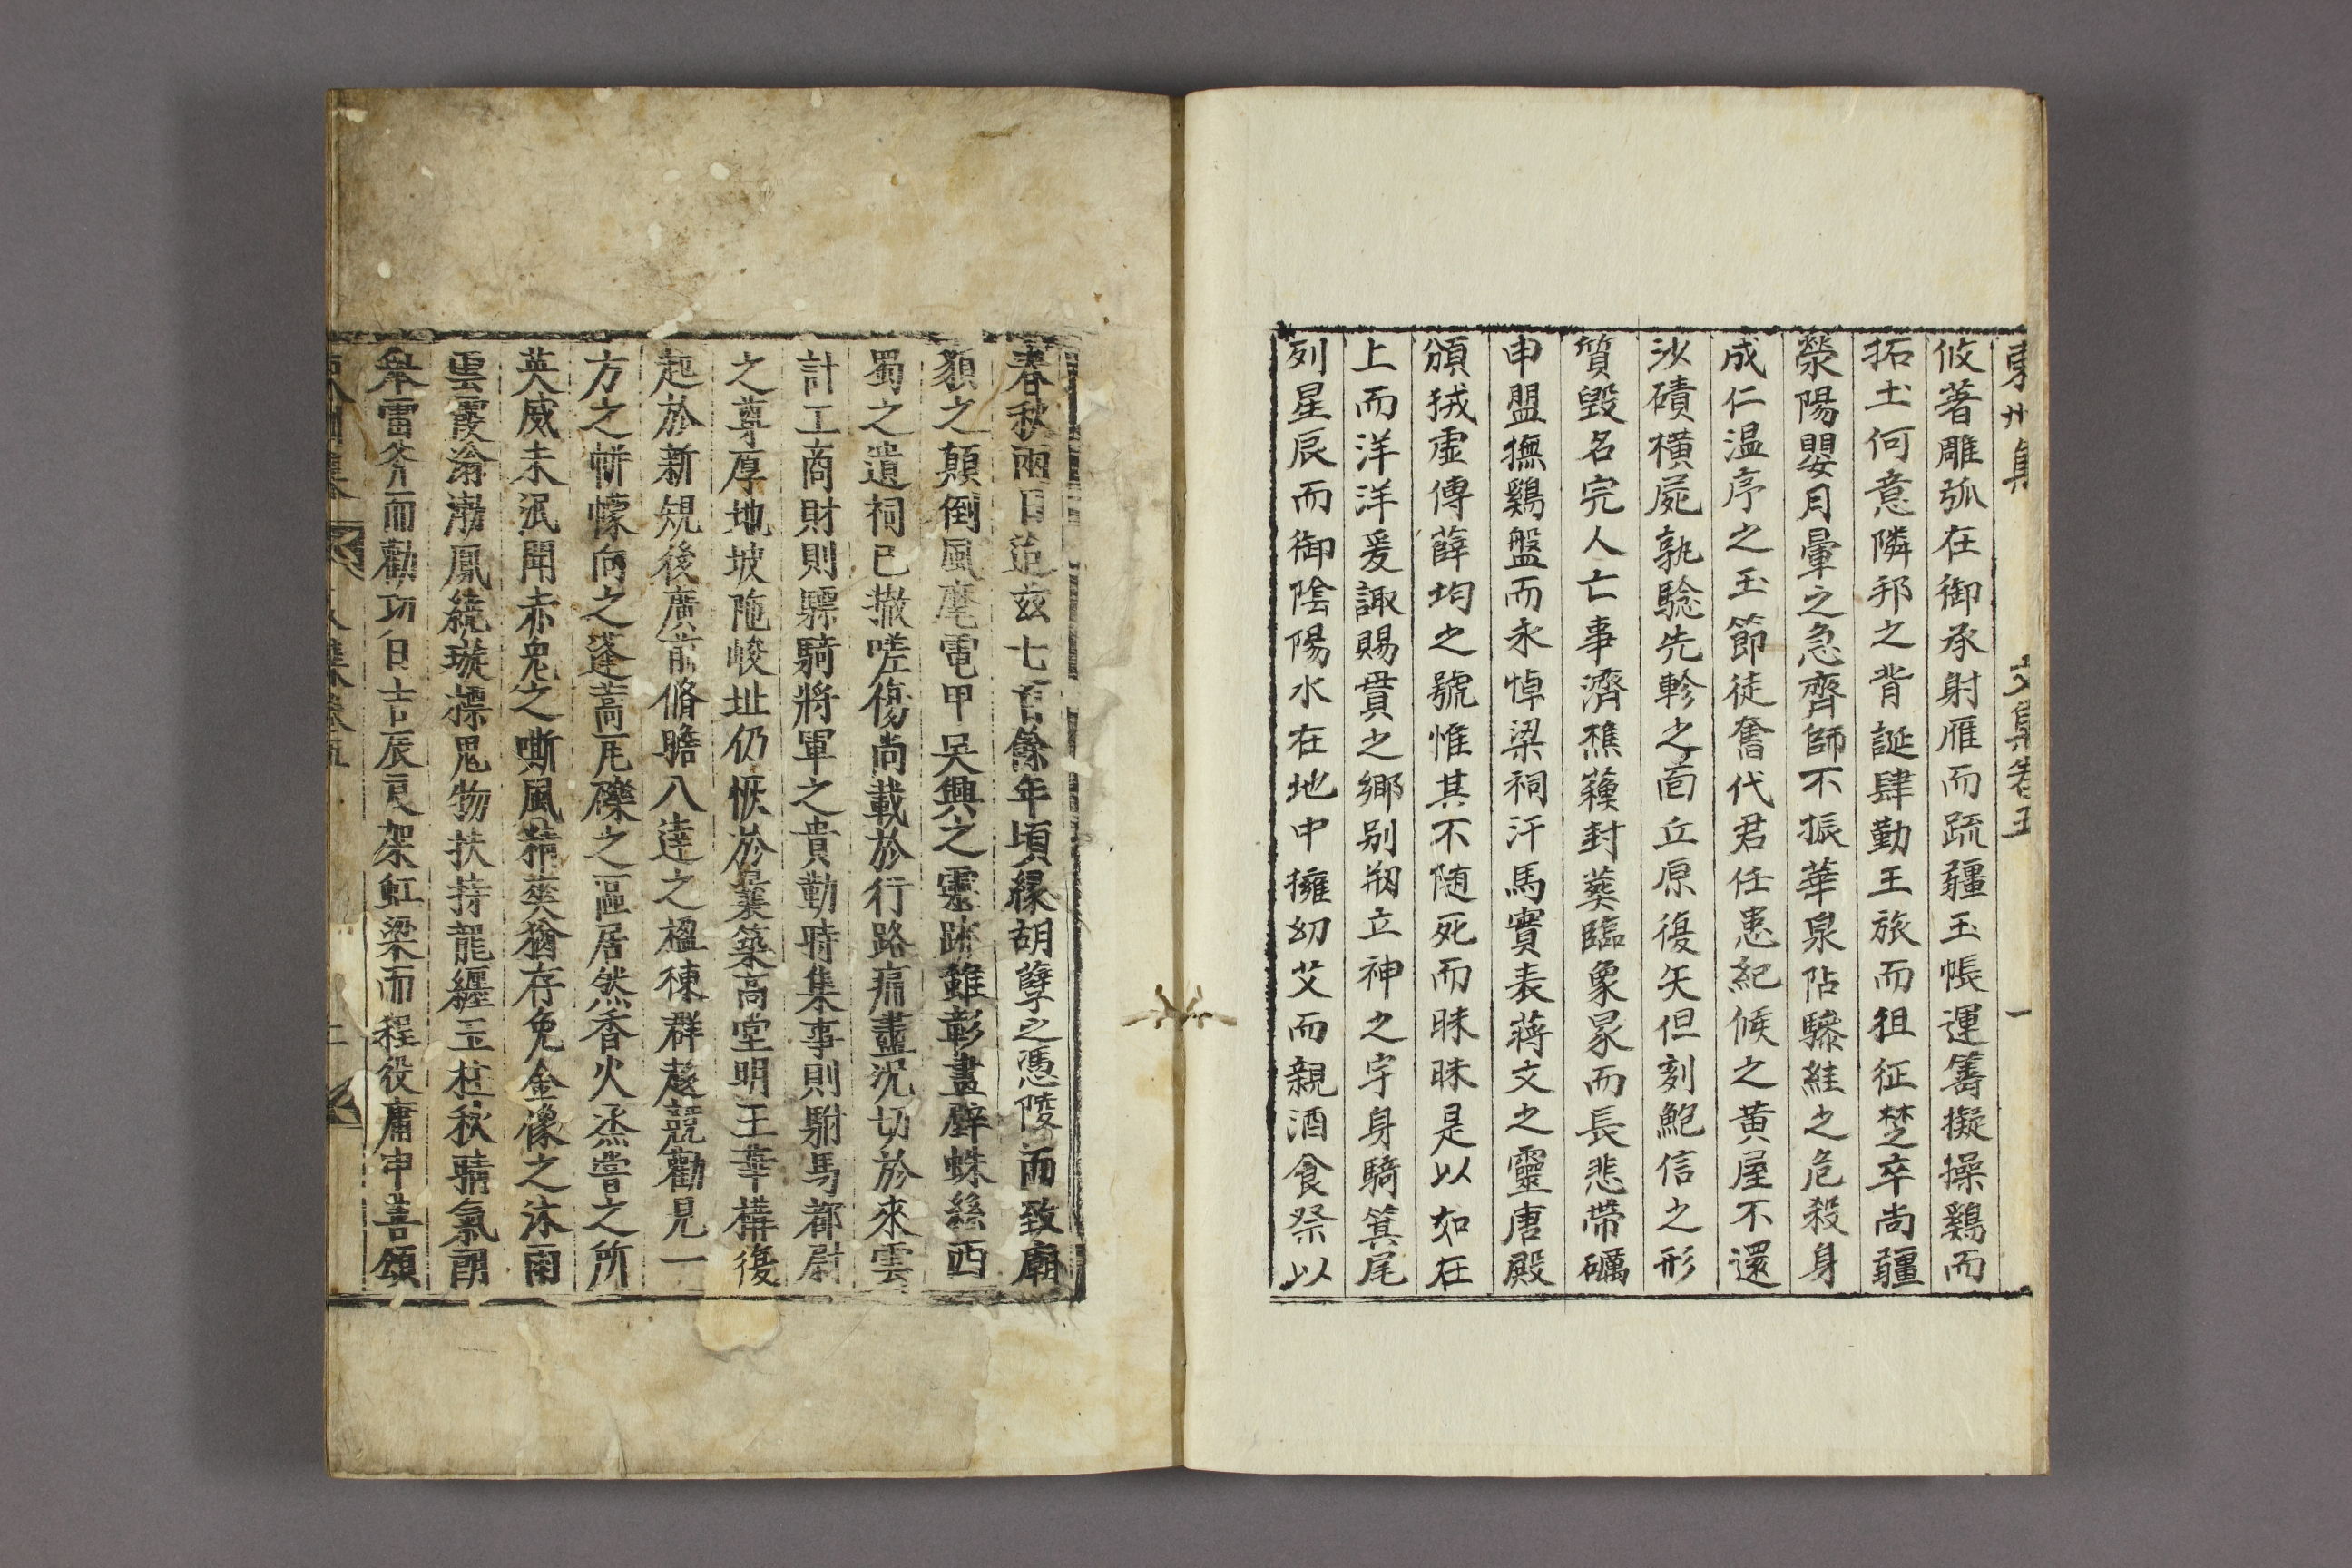 東州集 文集卷五 一
攸著雕弧在御承射雁而疏疆玉帳運籌擬操鷄而
拓土何意隣邦之背誕肆勤王旅而徂征楚卒尚疆
滎陽嬰月暈之急齊師不振華泉阽驂絓之危殺身
成仁温序之玉節徒奮代君任患紀候之黄屋不還
沙磧橫屍孰騐先軫之面丘原復矢但刻鮑信之形
質毀名完人亡事濟樵蘓封葵臨象冡而長悲帶礪
申盟撫鷄盤而永悼梁祠汗馬實表蔣文之靈唐殿
頒㧞虛傳薛均之號惟其不随死而昧昧是以如在
上而洋洋爰諏賜貫之鄉别剏立神之宇身騎箕尾
列星辰而御陰陽水在地中擁幼艾而親酒食祭以
春秋兩日造玆七百餘年頃緣胡孽之憑陵而致廟
貌之顛倒風麾電甲吴興之靈跡雖彰畫壁蛛絲西
蜀之遺祠已撤嗟傷尚載於行路痛盡沉切於來雲
計工商財則驃騎將軍之貴勤時集事則駙馬都尉
之尊厚地坡陁峻址仍恢於曩築高堂明王華構復
起於新規後廣前脩瞻八達之楹棟群趍競勸見一
方之帡幪向之蓬蒿瓦礫之區居然香火烝嘗之所
英威未泯聞赤兔之嘶風精爽猶存免金像之沐雨
雲霞滃渤鳳繞璇摽鬼物扶持龍纏玉柱秋晴氣朗
舉雷斧而勸功日吉辰良架虹梁而程役庸申善頌